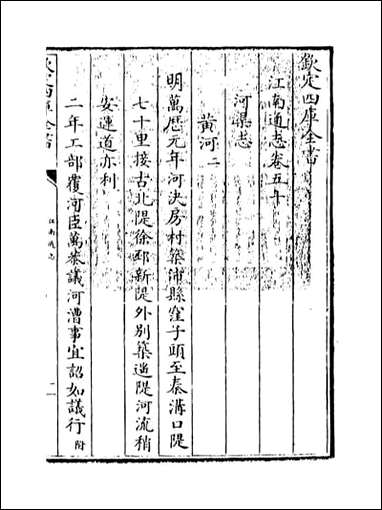 欽定四庫全書
江南通志卷五十
河渠志
黄河二
明萬厯元年河決房村築沛縣窪子頭至秦溝口隄
七十里接古北隄徐邳新隄外别築遙隄河流稍
安運道亦利
二年工部覆河臣萬恭議河漕事宜詔如議行附
江南通志